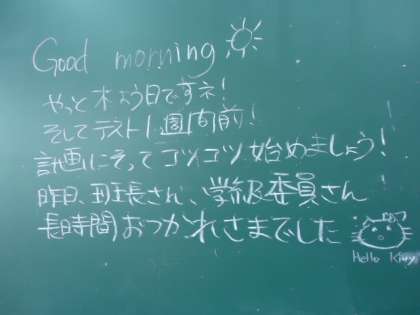 Good morning
やっと木よう日ですネ!
そしてテスト1週間前!
計画にそってコツコツ始めましょう!
昨日、班長さん、学級委員さん
長時間おつかれさまでした
Hello Kitty